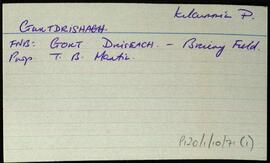 Kilcummin P.
GORTDRISHAGH.
FNB: GORT DRISEACH. - Briery Field.
Prop T. B. Martin.
P120/1/10/71 (1)